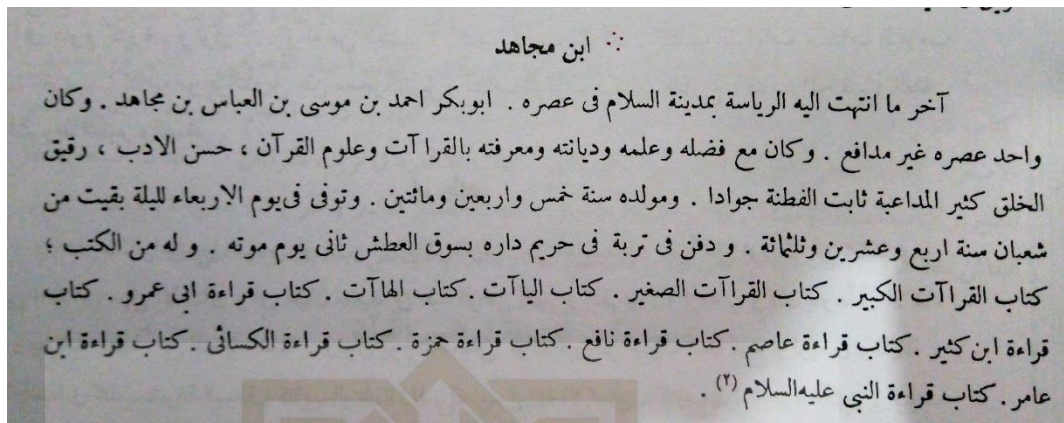 ابن مجاهد
آخر ما انتهت اليه الرياسة بمدينة السلام فى عصره . ابوبكر احمد بن موسى بن العباس بن مجاهد . وكان
واحد عصره غير مدافع . وكان مع فضله وعلمه وديانته ومعرفته بالقرا آت وعلوم القرآن ، حسن الادب ، رقيق
الخلق كثير المداعبة ثابت الفطنة جوادا . ومولده سنة خمس واربعين ومائتين . وتوفى فى يوم الاربعاء لليلة بقيت من
شعبان سنة اربع وعشرين وثلثمائة . و دفن فى تربة فى حريم داره بسوق العطش ثانى يوم موته . و له من الكتب ؛
كتاب القراآت الكبير . كتاب القراآت الصغير . كتاب الياآت . كتاب الهاآت . كتاب قراءة ابى عمرو . كتاب
قراءة ابن كثير . كتاب قراءة عاصم . كتاب قراءة نافع . كتاب قراءة حمزة . كتاب قراءة الكسائى . كتاب قراءة ابن
عامر . كتاب قراءة النبى عليه السلام (٢) .